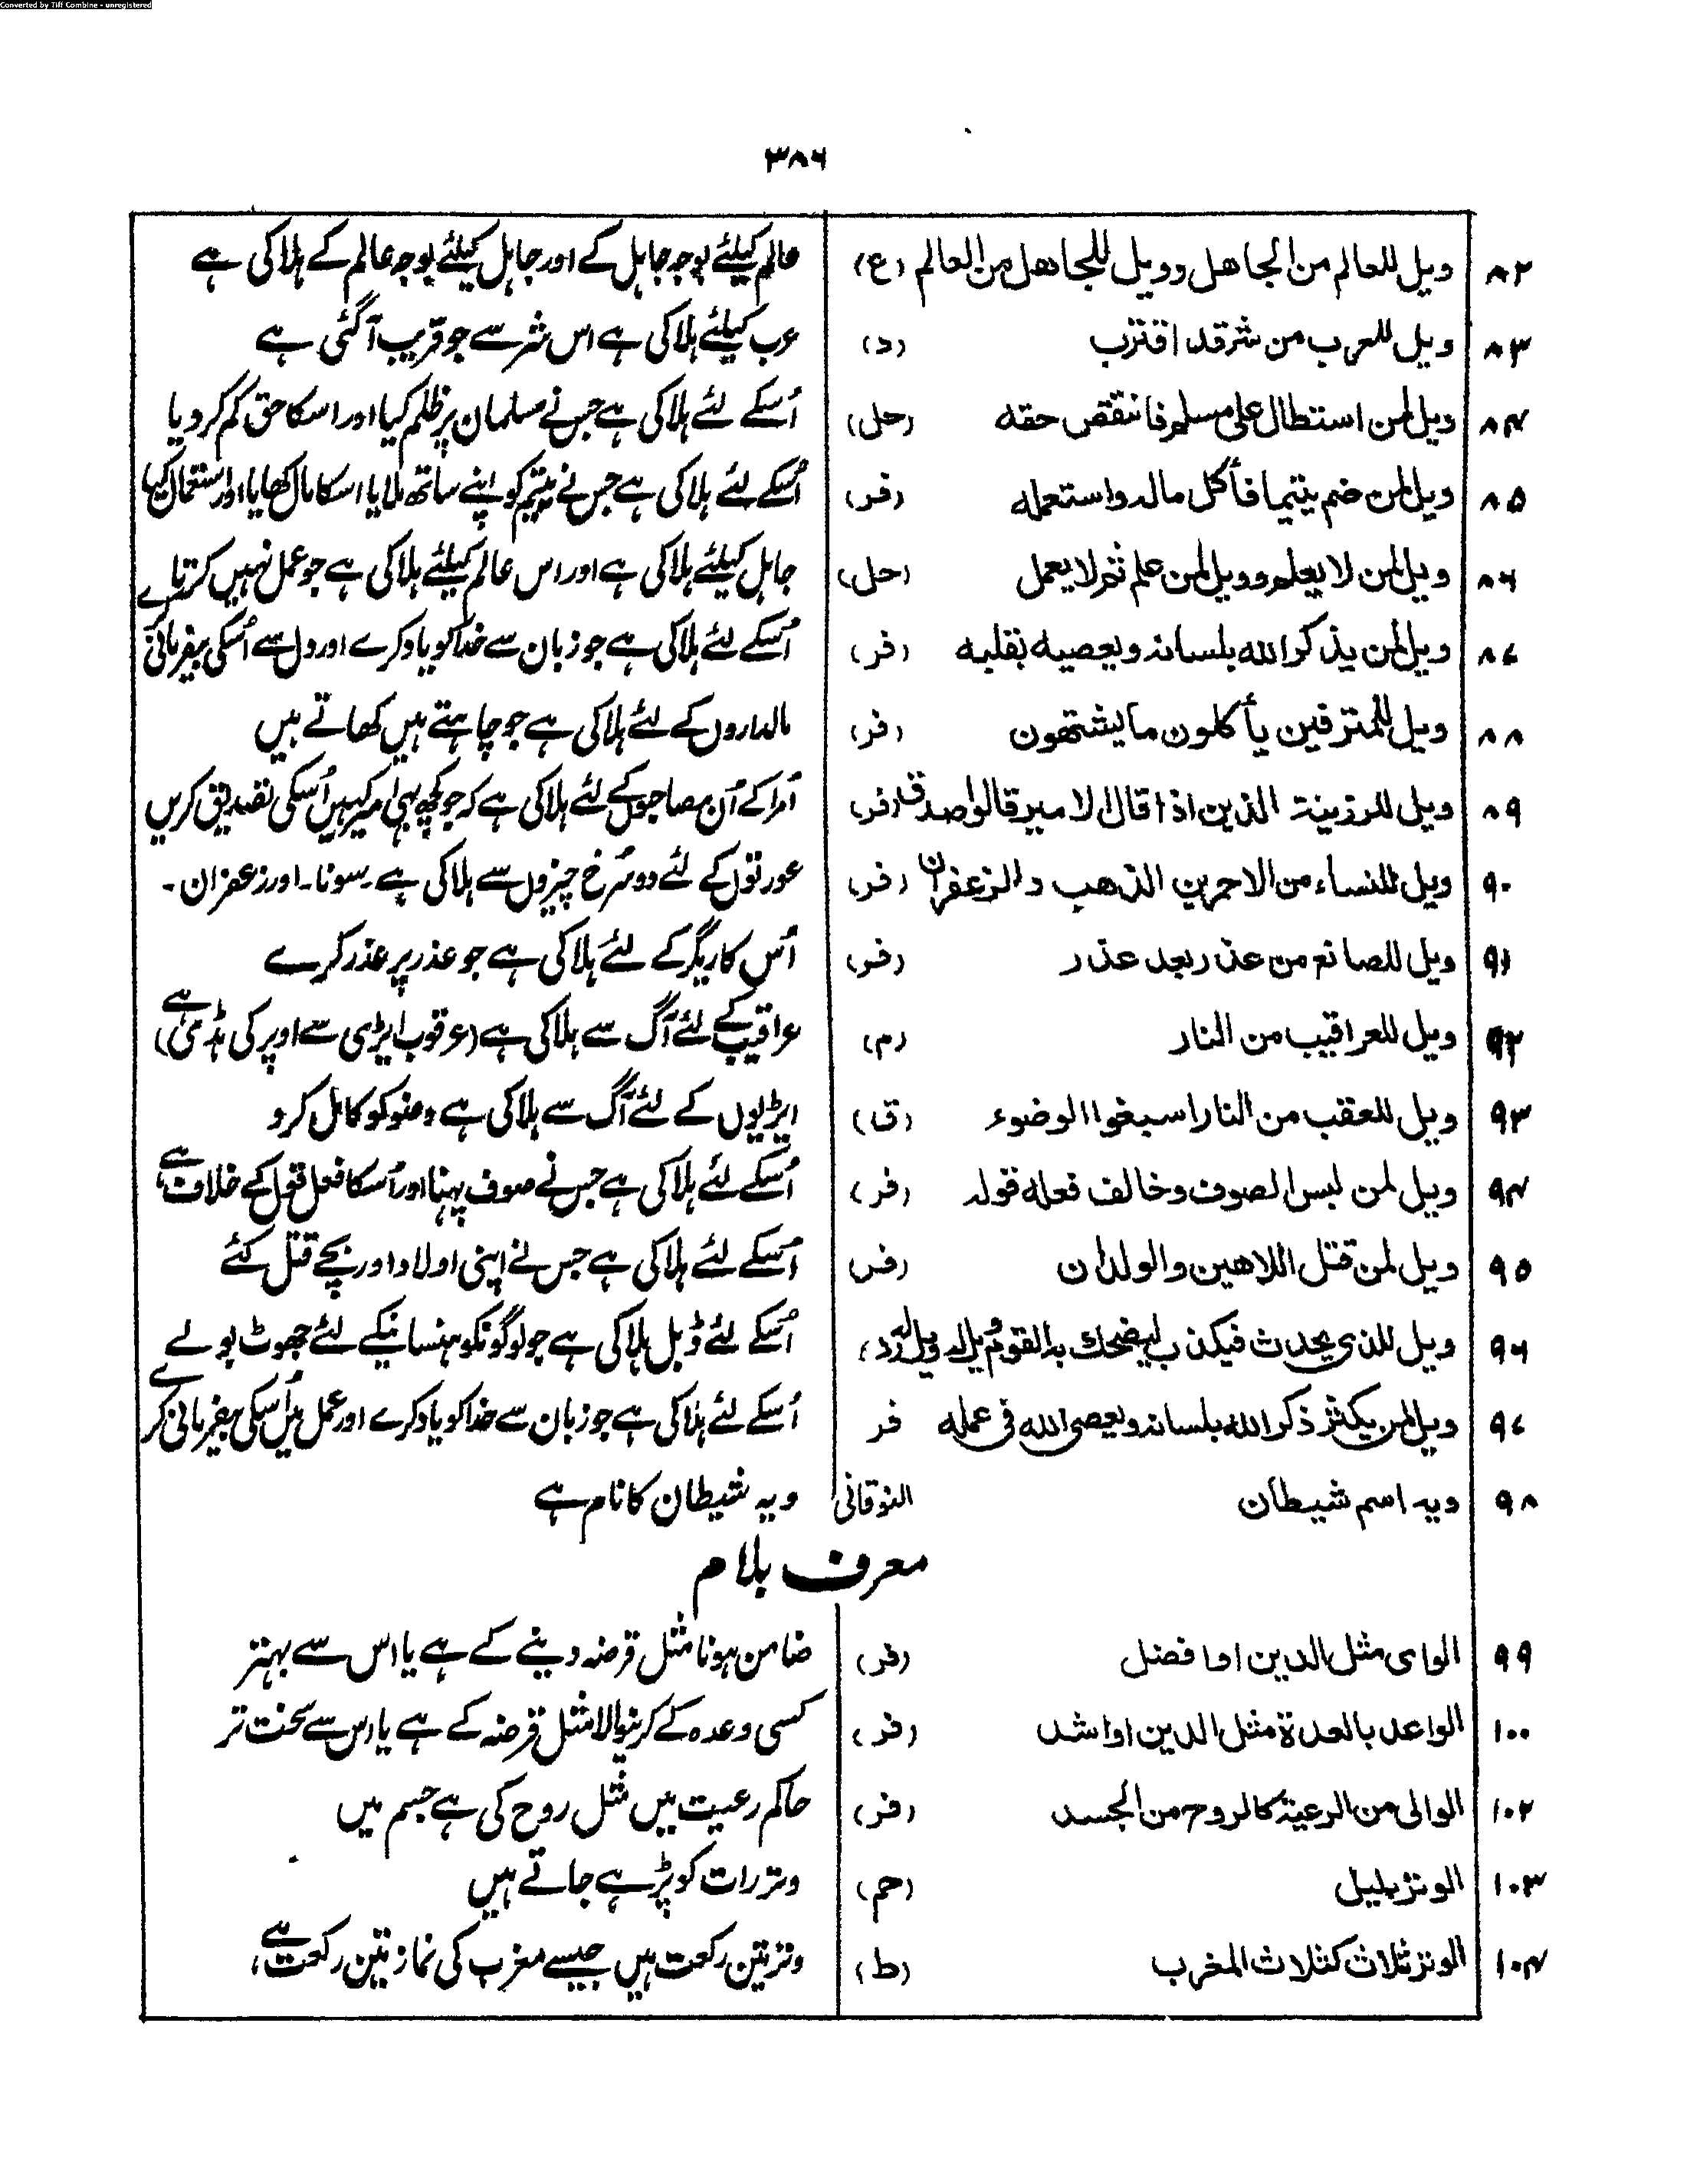 Converted by Tiff Combine - unregistered
۳۸۶
۸۲ ویل للعالم من الجاهل وویل للجاهل من العالم (ع) عالم کیلئے بوجہ جاہل کے اور جاہل کیلئے بوجہ عالم کے ہلاکی ہے
۸۳ ویل للعرب من شر قد اقترب (د) عرب کیلئے ہلاکی ہے اس شر سے جو قریب آگئی ہے
۸۴ ویل لمن استطال علی مسلم فانتقص حقه (حل) اُسکے لئے ہلاکی ہے جس نے مسلمان پر ظلم کیا اور اسکا حق کم کر دیا
۸۵ ویل لمن ضم یتیما فأکل ماله واستعمله (فر) اُسکے لئے ہلاکی ہے جس نے یتیم کو اپنے ساتھ ملایا اسکا مال کھایا اور استعمال کیا
۸۶ ویل لمن لا یعلم وویل لمن علم ثم لا یعمل (حل) جاہل کیلئے ہلاکی ہے اور اس عالم کیلئے ہلاکی ہے جو عمل نہیں کرتا
۸۷ ویل لمن یذکر الله بلسانه ویعصیه بقلبه (فر) اُسکے لئے ہلاکی ہے جو زبان سے خدا کو یاد کرے اور دل سے اُسکی بیفرمانی کرے
۸۸ ویل للمترفین یأکلون ما یشتهون (فر) مالداروں کے لئے ہلاکی ہے جو چاہتے ہیں کھاتے ہیں
۸۹ ویل للرزینة الذین اذا قال الامیر قالوا صدق (فر) اُمرا کے اُن مصاحبوں کے لئے ہلاکی ہے کہ جو کچھ بھی امیر کہیں اُسکی تصدیق کریں
۹۰ ویل للنساء من الاحمرین الذهب والزعفران (فر) عورتوں کے لئے دو سُرخ چیزوں سے ہلاکی ہے۔ سونا۔ اور زعفران۔
۹۱ ویل للصانع من عذر بعد عذر (فر) اُس کاریگر کے لئے ہلاکی ہے جو عذر پر عذر کرے
۹۲ ویل للعراقیب من النار (م) عراقیب کے لئے آگ سے ہلاکی ہے (عرقوب ایڑی سے اوپر کی ہڈی ہے)
۹۳ ویل للعقب من النار اسبغوا الوضوء (ق) ایڑیوں کے لئے آگ سے ہلاکی ہے وضو کو کامل کرو
۹۴ ویل لمن لبس الصوف وخالف فعله قوله (فر) اُسکے لئے ہلاکی ہے جس نے صوف پہنا اور اُسکا فعل قول کے خلاف ہے
۹۵ ویل لمن قتل اللاهین والولدان (فر) اُسکے لئے ہلاکی ہے جس نے اپنی اولاد اور بچے قتل کئے
۹۶ ویل للذی یحدث فیکذب لیضحک به القوم ویل له ویل له (د) اُسکے لئے ڈبل ہلاکی ہے جو لوگونکو ہنسانیکے لئے جھوٹ بولے
۹۷ ویل لمن یکثر ذکر الله بلسانه ویعصی الله فی عمله فر اُسکے لئے ہلاکی ہے جو زبان سے خدا کو یاد کرے اور عمل میں اُسکی بیفرمانی کرے
۹۸ ویه اسم شیطان النوقانی ویہ شیطان کا نام ہے
معرف بلام
۹۹ الوای مثل الدین او افضل (فر) ضامن ہونا مثل قرضہ دینے کے ہے یا اس سے بہتر
۱۰۰ الواعد بالعدة مثل الدین او اشد (فر) کسی وعدہ کے کرنیوالا مثل قرضہ کے ہے یا اس سے سخت تر
۱۰۲ الوالی من الرعیة کالروح من الجسد (فر) حاکم رعیت میں مثل روح کی ہے جسم میں
۱۰۳ الوتر بلیل (حم) وتر رات کو پڑہے جاتے ہیں
۱۰۴ الوتر ثلاث کثلاث المغرب (ط) وتر تین رکعت ہیں جیسے مغرب کی نماز تین رکعت ہے،